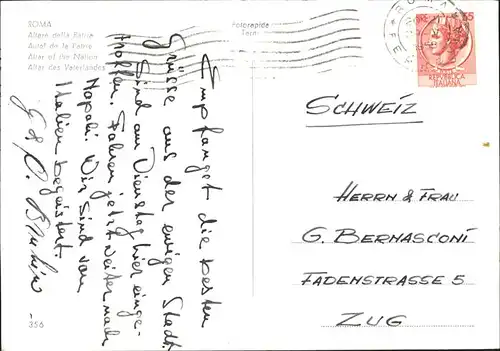 ROMA
Altare della Patria
Autel de la Patrie
Altar of the Nation
Altar des Vaterlandes
Fotorapida
Terni
ROMA
65
REPUBBLICA
ITALIANA
Empfanget die besten
Grüsse aus der ewigen Stadt.
Sind am Dienstag hier einge-
troffen. Fahren jetzt weiter nach
Napoli. Wir sind von
Italien begeistert.
SCHWEIZ
HERRN & FRAU
G. BERNASCONI
FADENSTRASSE 5
ZUG
356